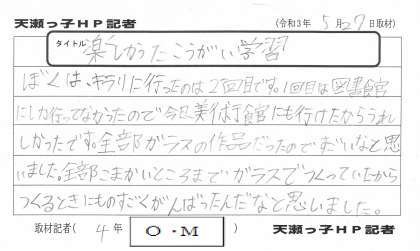 天瀬っ子HP記者 (令和3年 5月27日取材)
タイトル 楽しかったこうがい学習
ぼくは、キラリに行ったのは2回目です。1回目は図書館
にしか行ってなかったので今回美術館にも行けたからうれ
しかったです。全部ガラスの作品だったのですごいなと思
いました。全部こまかいところまでガラスでつくっていたから
つくるときにものすごくがんばったんだなと思いました。
取材記者( 4年 O・M ) 天瀬っ子HP記者